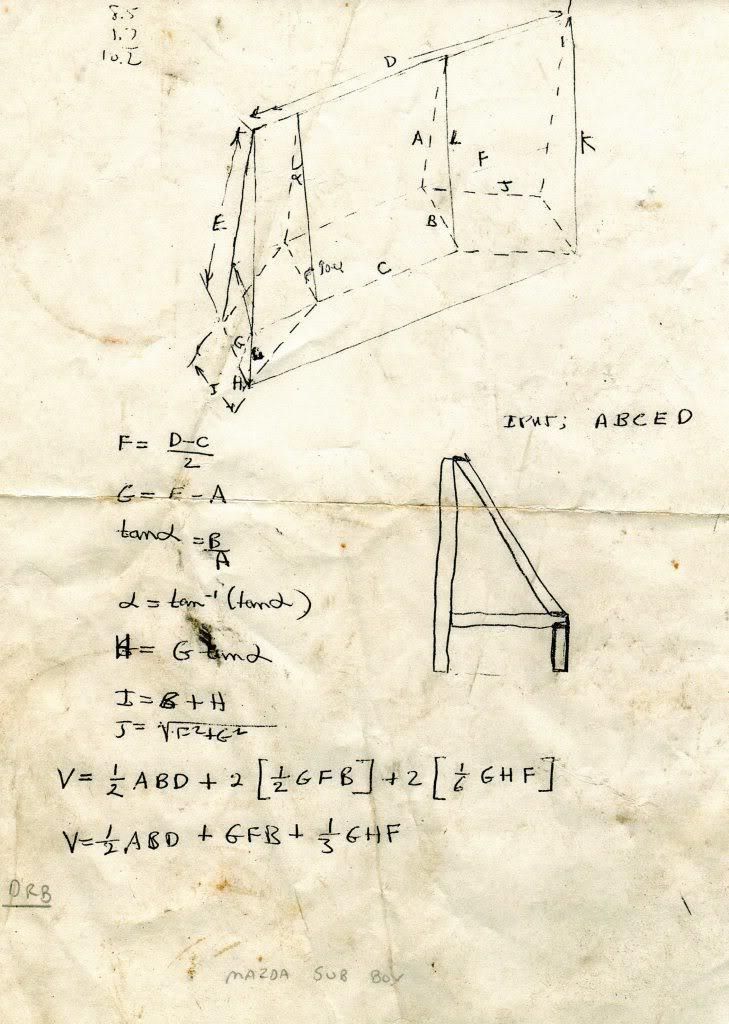 8.5
1.7
D
A L
F
K
E
J
B
C
G
J
H
INPUT; ABCED
F = D-C/2
G = E - A
tanα = B/A
α = tan⁻¹(tanα)
H = G tanα
I = B + H
J = √F²+G²
V = 1/2 ABD + 2 [1/2 GFB] + 2 [1/6 GHF]
V = 1/2 ABD + GFB + 1/3 GHF
DRB
MAZDA SUB BOX